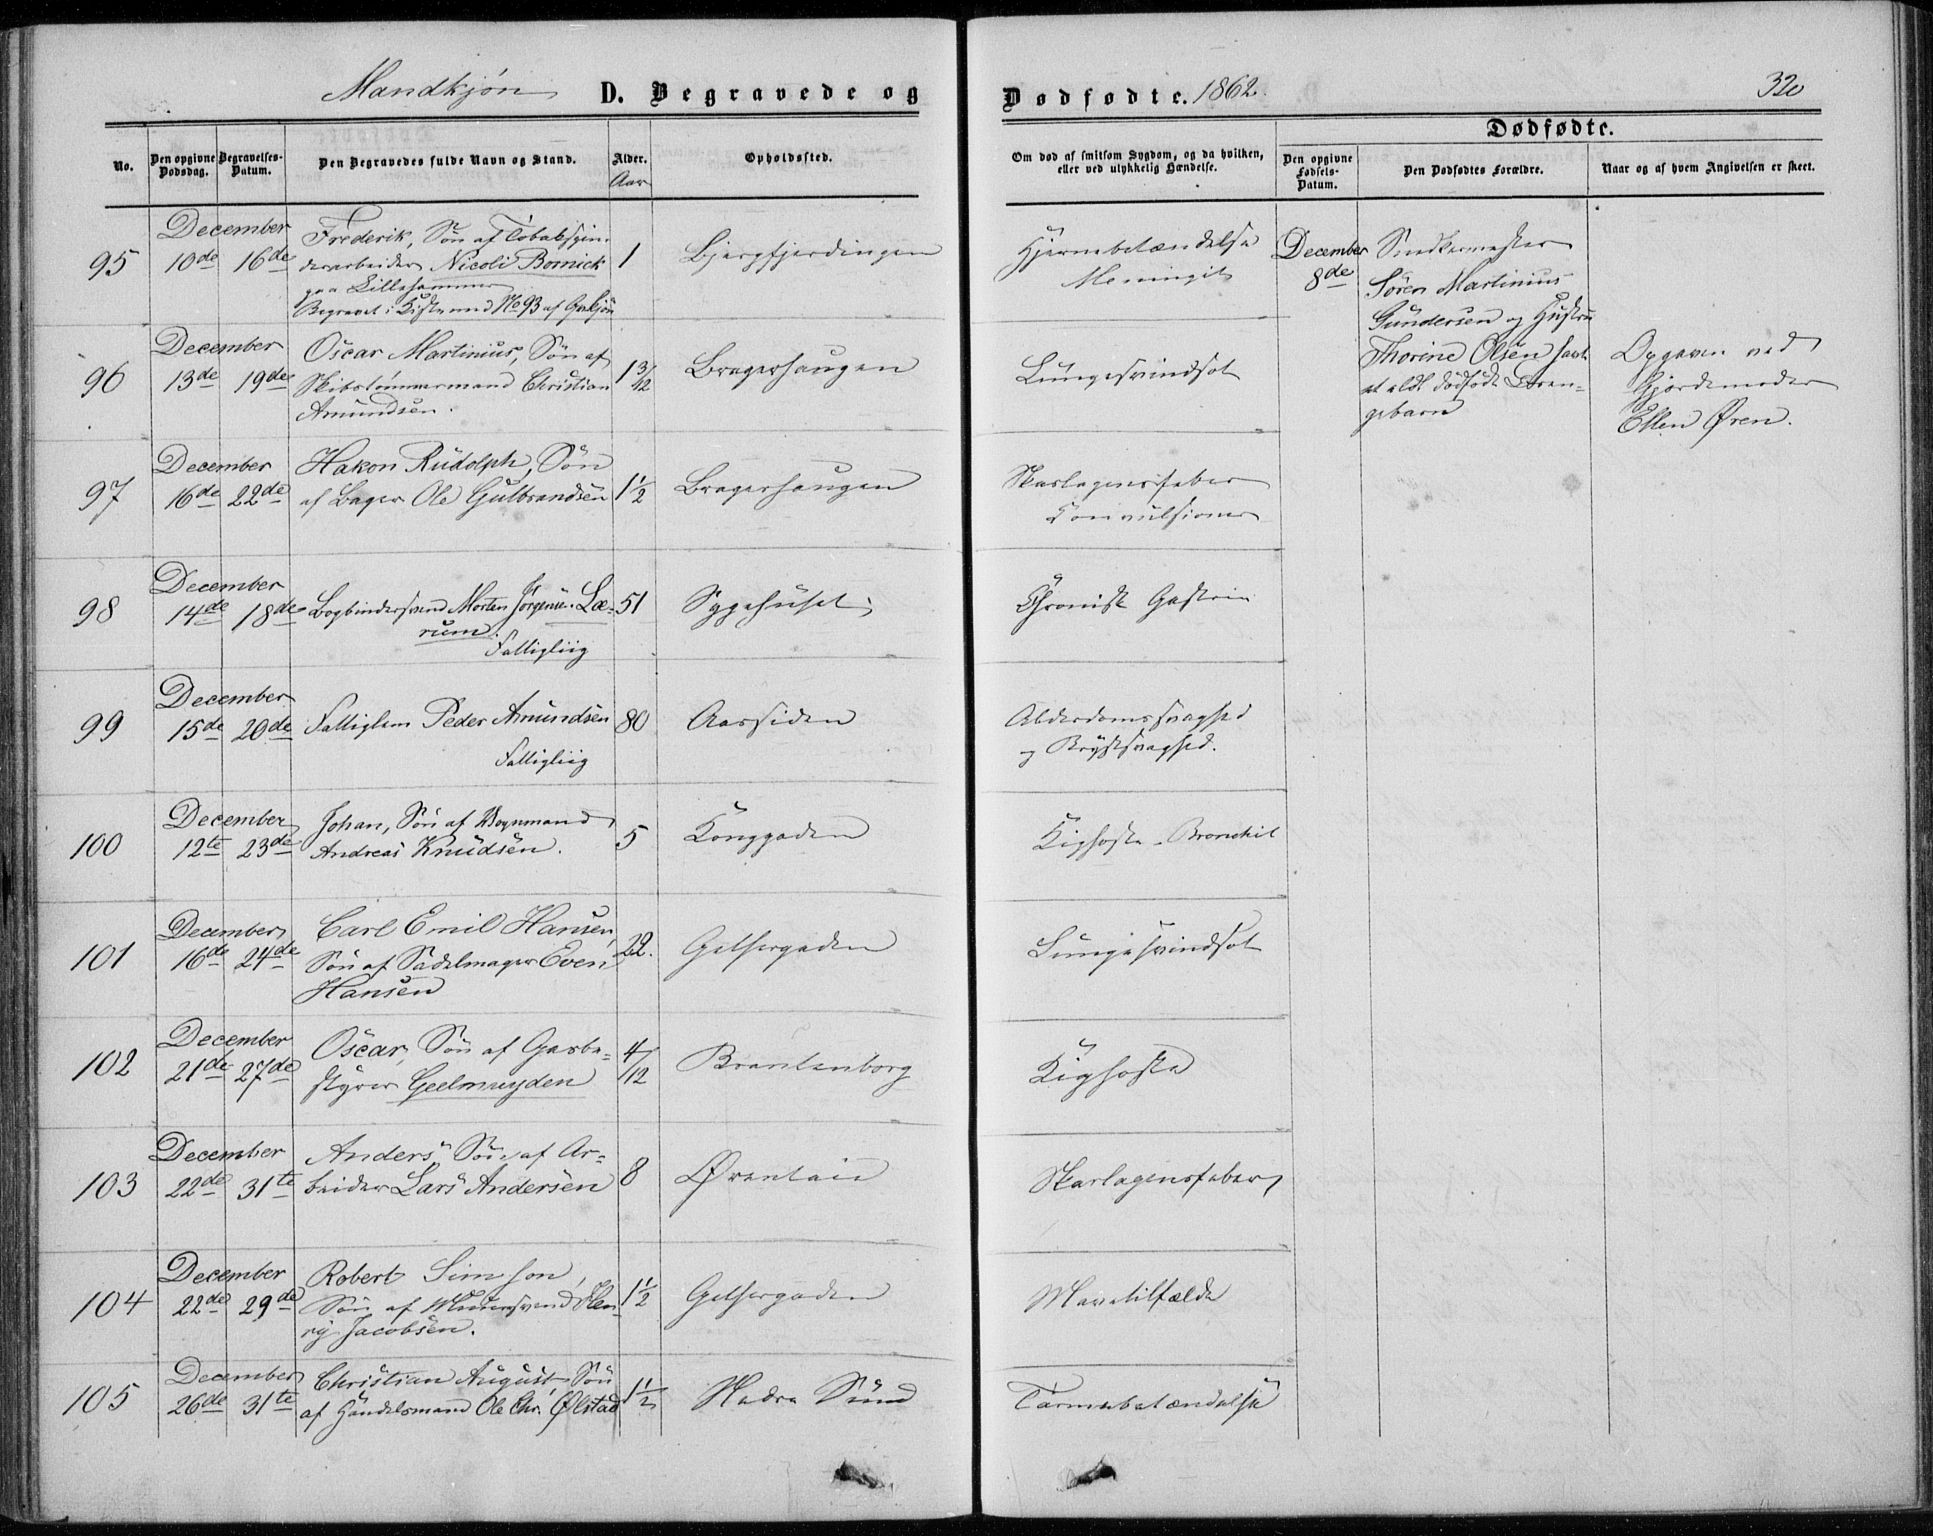 Mandkjøn D. Begravede og
Dødfødte. 1862. 320
No.
Den opgivne Dødsdag.
Begravelses-Datum.
Den Begravedes fulde Navn og Stand.
Alder.
Aar
Opholdssted.
Om død af smitsom Sygdom, og da hvilken,
eller ved ulykkelig Hændelse.
Dødfødte.
Den opgivne Fødsels-Datum.
Den Dødfødtes Forældre.
Naar og af hvem Angivelsen er skeet.
95 December 10de 16de
Frederik, Søn af Tobakspin-
derarbeider Nicoli Bornick
paa Lillehammer
Begravet i Kiste med No 93 af Qvkjøn
1 Bjergfjerdingen
Hjernebetændelse
Meningit
December 8de
Snedkermester
Søren Martinius
Gundersen og Hustru
Thorine Olsen havt
et aldl dødfødt Dren-
gebarn
Opgaven ved
Gjordemoder
Ellen Øren.
96 December 13de 19de
Oscar Martinius, Søn af
Skibstømmermand Christian
Amundsen.
1 3/12 Bragerhaugen
Lungesvindsot
97 December 16de 22de
Hakon Rudolph, Søn
af Bager Ole Gulbrandsen
1½ Bragerhaugen
Skarlagensfeber
Convulsioner
98 December 14de 18de
Bogbindersvend Morten Jørgensen Læ-
rum.
Fattigliig
51 Sygehuset
Chronisk Gastric
99 December 15de 20de
Fattiglem Peder Amundsen
Fattigliig
80 Aassiden
Alderdomssvaghed
og Brystsvaghed.
100 December 12te 23de
Johan, Søn af Vognmand
Andreas Knudsen.
5 Konggaden
Kighoste - Bronchit
101 December 16de 24de
Carl Emil Hansen,
Søn af Sadelmager Even
Hansen
22. Gethergaden
Lungesvindsot
102 December 21de 27de
Oscar, Søn af Gasbe-
styrer Geelmuyden
4/12 Brantenborg
Kighoste
103 December 22de 31te
Anders, Søn af Ar-
beider Lars Andersen
8 Ørentein
Skarlagensfeber
104 December 22de 29de
Robert Simson,
Søn af Murersvend Hen-
ry Jacobsen.
1½ Gethergaden
Mavetilfælde
105 December 26de 31te
Christian August Søn
af Handelsmand Ole Chr. Ølstad
1½ Nedre Sund
Tarmebetændelse